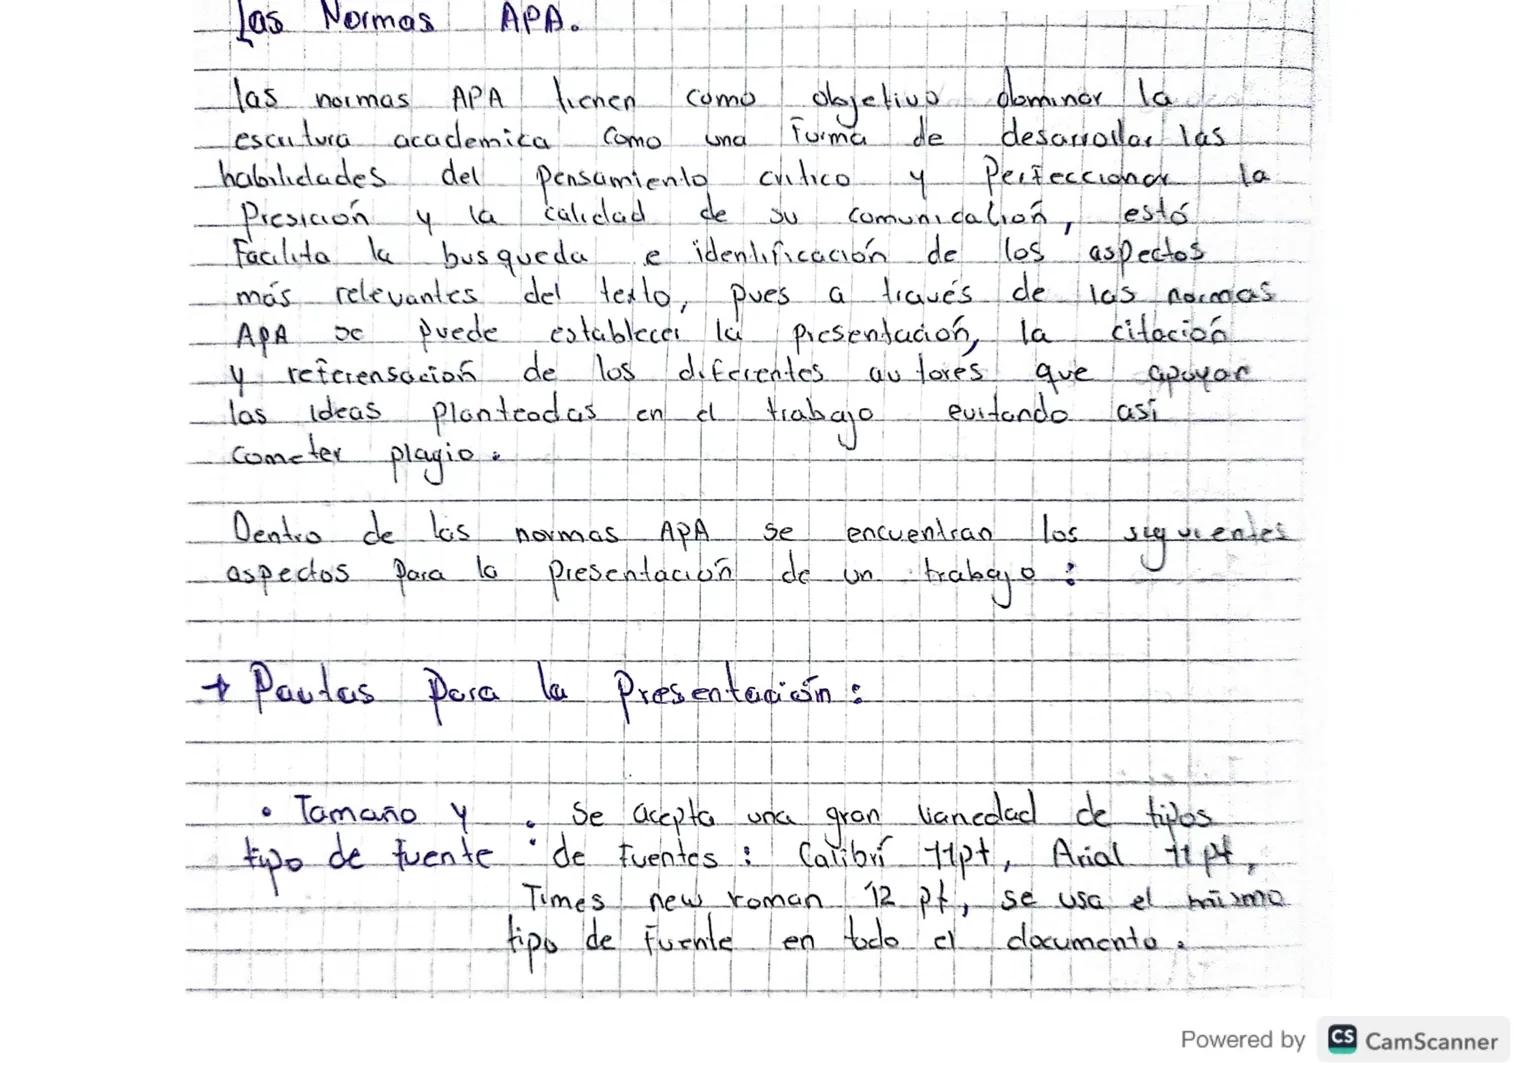 Las Normas APA.
las normas APA tienen como objetivo dominar la
escritura academica como una forma de desarrollar las
habilidades del pensamiento critico y Perfeccionar la
Presición y la calidad de su comunicación, estó
Facilita la busqueda e identificación de los aspectos
más relevantes del texto, pues a través de las normas
APA se puede establecer la presentación, la citación
y referensación de los diferentes autores que apoyan
las ideas planteadas en el trabajo evitando así
cometer plagio.
Dentro de las normas APA se encuentran los siguientes
aspectos Para la presentación de un trabajo :
→ Pautas Para la Presentación :
• Tamaño y : Se acepta una gran variedad de tipos
tipo de fuente de Fuentes : Calibrí 11pt, Arial 11 pt,
Times new roman 12 pt, se usa el mismo
tipo de Fuente en todo el documento.
Powered by CS CamScanner